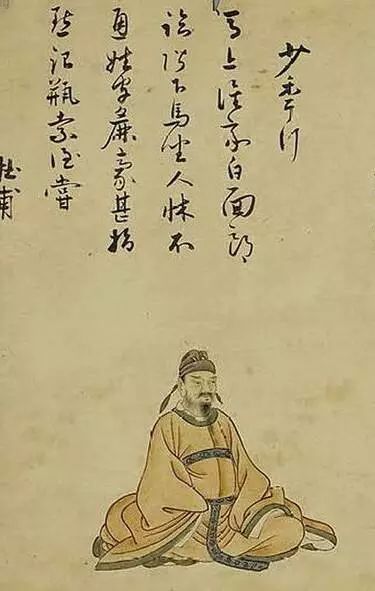 少年行
馬上誰家白面郎
臨階下馬坐人牀不
通姓字麁豪甚指
點銀瓶索酒嘗
杜甫